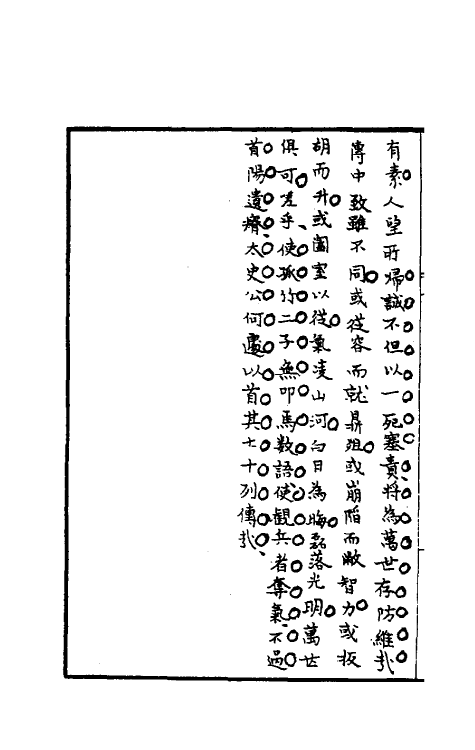 有素人望所歸誠不但以一死塞責將為萬世存防維哉
傳中致雖不同或從容而就鼎俎或崩陷而敝智力或扳
胡而升或闔室以從氣凌山河白日為晦磊落光明萬世
俱可嗟乎使孤竹二子無叩馬數語使觀兵者奪氣不過
首陽遺瘠太史公何處以首其七十列傳哉